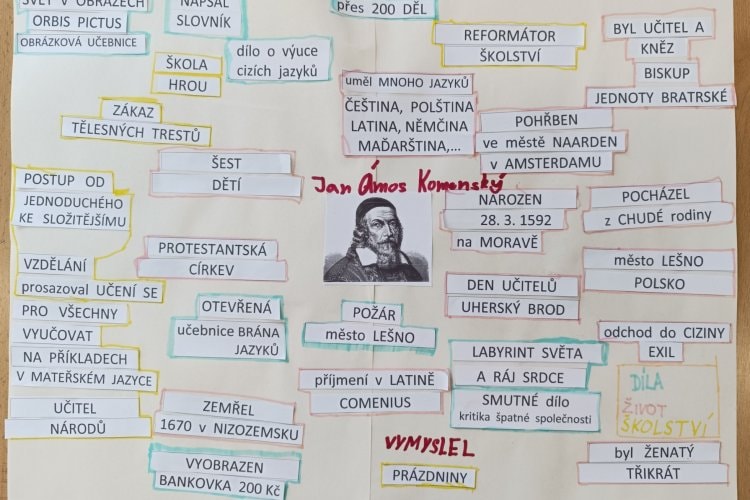 SVĚT V OBRAZECH
ORBIS PICTUS
OBRÁZKOVÁ UČEBNICE
NAPSAL
SLOVNÍK
dílo o výuce
cizích jazyků
přes 200 DĚL
REFORMÁTOR
ŠKOLSTVÍ
BYL UČITEL A
KNĚZ
BISKUP
JEDNOTY BRATRSKÉ
ŠKOLA
HROU
ZÁKAZ
TĚLESNÝCH TRESTŮ
uměl MNOHO JAZYKŮ
ČEŠTINA, POLŠTINA
LATINA, NĚMČINA
MAĎARŠTINA,...
POHŘBEN
ve městě NAARDEN
v AMSTERDAMU
ŠEST
DĚTÍ
POSTUP OD
JEDNODUCHÉHO
KE SLOŽITĚJŠÍMU
Jan Ámos Komenský
NAROZEN
28. 3. 1592
na MORAVĚ
POCHÁZEL
z CHUDÉ rodiny
PROTESTANTSKÁ
CÍRKEV
VZDĚLÁNÍ
prosazoval UČENÍ SE
PRO VŠECHNY
VYUČOVAT
NA PŘÍKLADECH
V MATEŘSKÉM JAZYCE
město LEŠNO
POLSKO
DEN UČITELŮ
UHERSKÝ BROD
OTEVŘENÁ
učebnice BRÁNA
JAZYKŮ
POŽÁR
město LEŠNO
odchod do CIZINY
EXIL
LABYRINT SVĚTA
A RÁJ SRDCE
SMUTNÉ dílo
kritika špatné společnosti
DÍLA
ŽIVOT
ŠKOLSTVÍ
příjmení v LATINĚ
COMENIUS
UČITEL
NÁRODŮ
ZEMŘEL
1670 v NIZOZEMSKU
VYMYSLEL
PRÁZDNINY
byl ŽENATÝ
TŘIKRÁT
VYOBRAZEN
BANKOVKA 200 Kč